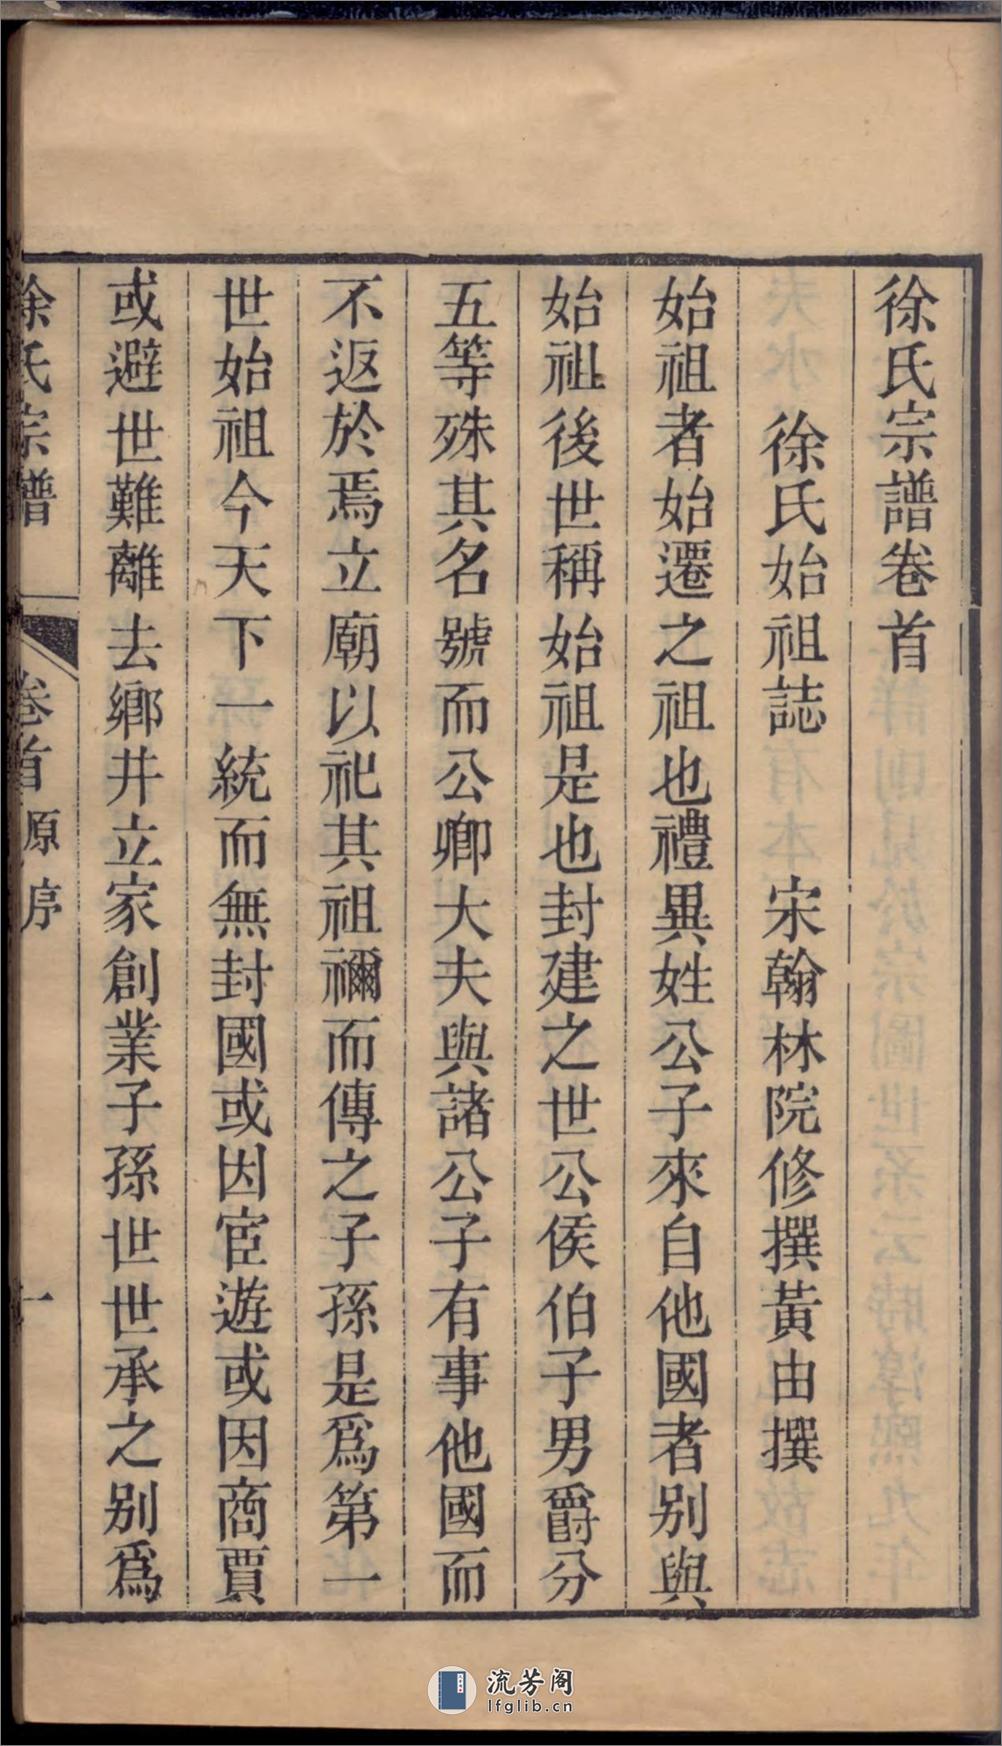 徐氏宗譜卷首
徐氏始祖誌　宋翰林院修撰黃由撰
始祖者始遷之祖也禮異姓公子來自他國者别與
始祖後世稱始祖是也封建之世公侯伯子男爵分
五等殊其名號而公卿大夫與諸公子有事他國而
不返於焉立廟以祀其祖禰而傳之子孫是爲第一
世始祖今天下一統而無封國或因宦遊或因商賈
或避世難離去鄉井立家創業子孫世世承之别爲
徐氏宗譜　卷首　原序　一
流芳阁
lfglib.cn